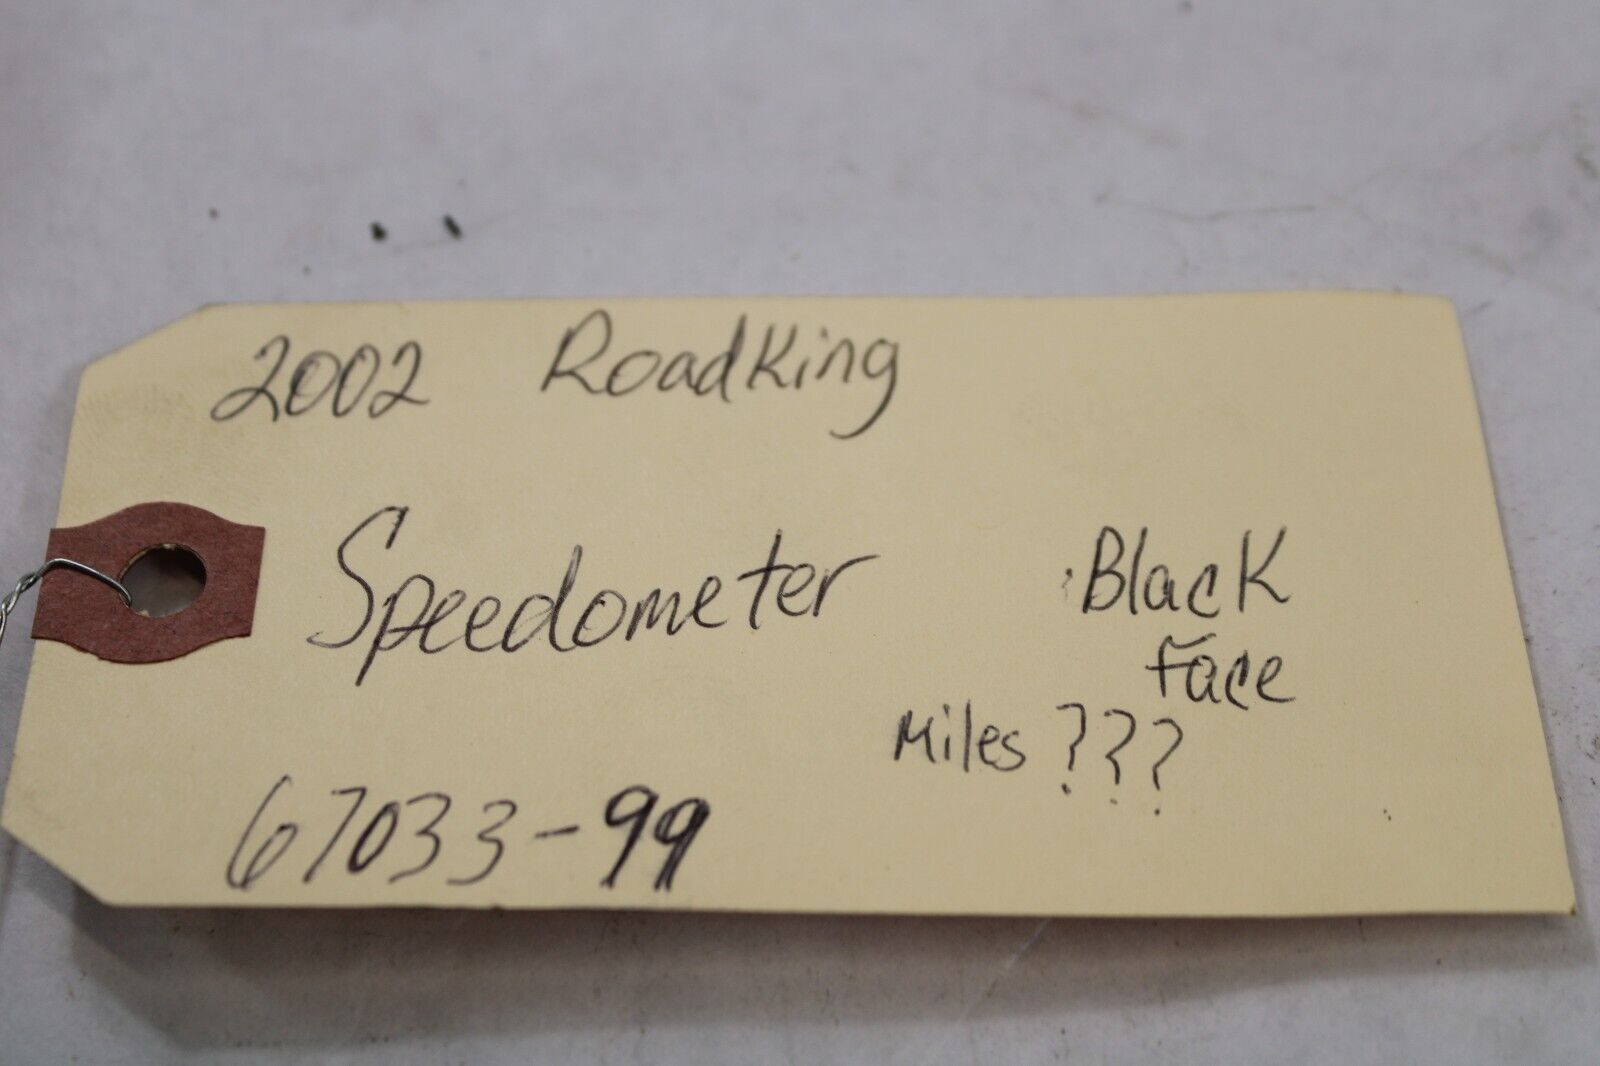 2002 RoadKing
Speedometer
Black
Face
Miles ???
67033-99